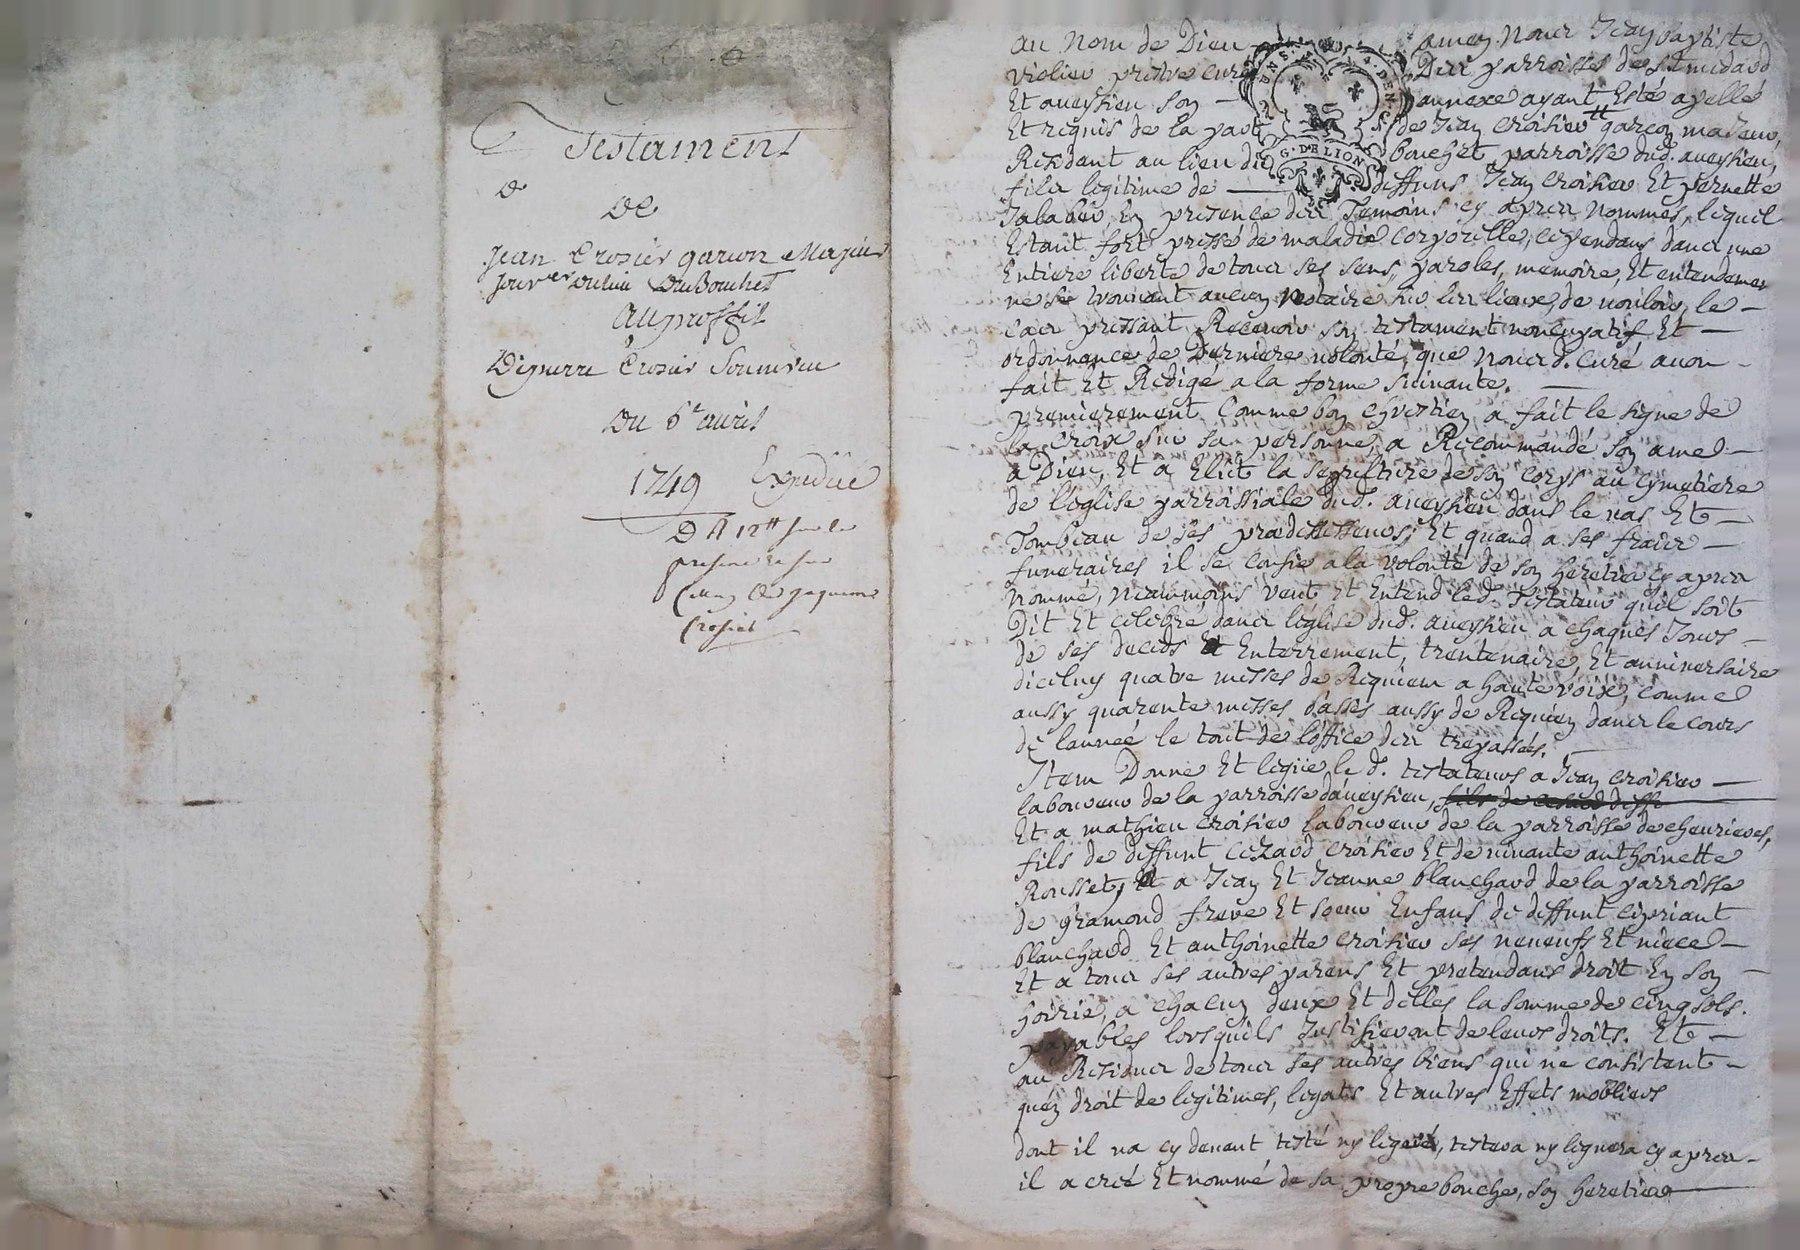 Testament
De
Jean Crosier garcon Majeur
Jour.er du lieu Du Bouchet
Au proffit
De pierre Crosier Son neveu
Du 6.e avril
1749 Expediée
D R 12tt
Crosier
au Nom de Dieu amen. Nous Jean baptiste
violier prestre curé Des parroisses de St medard
Et aveysieu son annexe ayant Esté apellé
Et requis de la part de Jean croisier garçon majeur,
Residant au lieu du bouchet, parroisse dud. aveysieu,
fils legitime de deffuns Jean croisier Et pernette
Jalabeu En presence des Temoins cy apres nommés, lequel
Estant fort pressé de maladie corporelle, cependans dans une
Entiere liberte de tous ses sens, paroles, memoire, Et entendemen
ne se trouvant aucun Notaire sur les lieux, de vouloir, le
cas pressant Recevoir son testament noncupatif Et
ordonnance de Derniere volonté, que nous d. curé avon
fait Et Redigé a la forme suivante.
premierement Comme bon chrestien a fait le signe de
la croix sur sa personne, a Recommandé son ame
a Dieu, Et a Elict la sepulture de son corps au cymetiere
de l'église parroissiale dud. aveysieu dans le vas Et
Tombeau de ses prædesessseurs; Et quand a ses frais
funeraires il se confie a la volonté de son heretier cy apres
nommé, neammoins veut Et Entend led. Testateur quil soit
Dit Et celebré dans l'église dud. aveysieu a chaques Jours
de ses decèds Et Enterrement, trentenaire, Et anniversaire
diceluy quatre messes de Requiem a haute voix, comme
aussy quarente messes basses aussy de Requiem dans le cours
de l'année le tout de l'office des trepassés.
Item Donne Et legue le d. testateurs a Jean croisier
laboureur de la parroisse daveysieu, fils de
Et a mathieu croisier laboureur de la parroisse de chevrieres,
fils de deffunt cezard croisier Et de vivante anthoinette
Rousset, Et a Jean Et Jeanne blanchard de la parroisse
de gramond frere Et soeur Enfans de deffunt cipriant
blanchard Et anthoinette croisier ses neveufs Et niece
Et a tous ses autres parens Et pretendans droit En son
hoirie, a chacun deux Et delles la somme de cinq sols.
payables lorsquils Justifieront de leurs droits. Et
au Residus de tous ses autres biens qui ne consistent
quén droit de legitimes, legats Et autres Effets mobliers
dont il na cy devant testé ny legué, testera ny leguera cy apres
il a creé Et nommé de sa propre bouche, son heretier